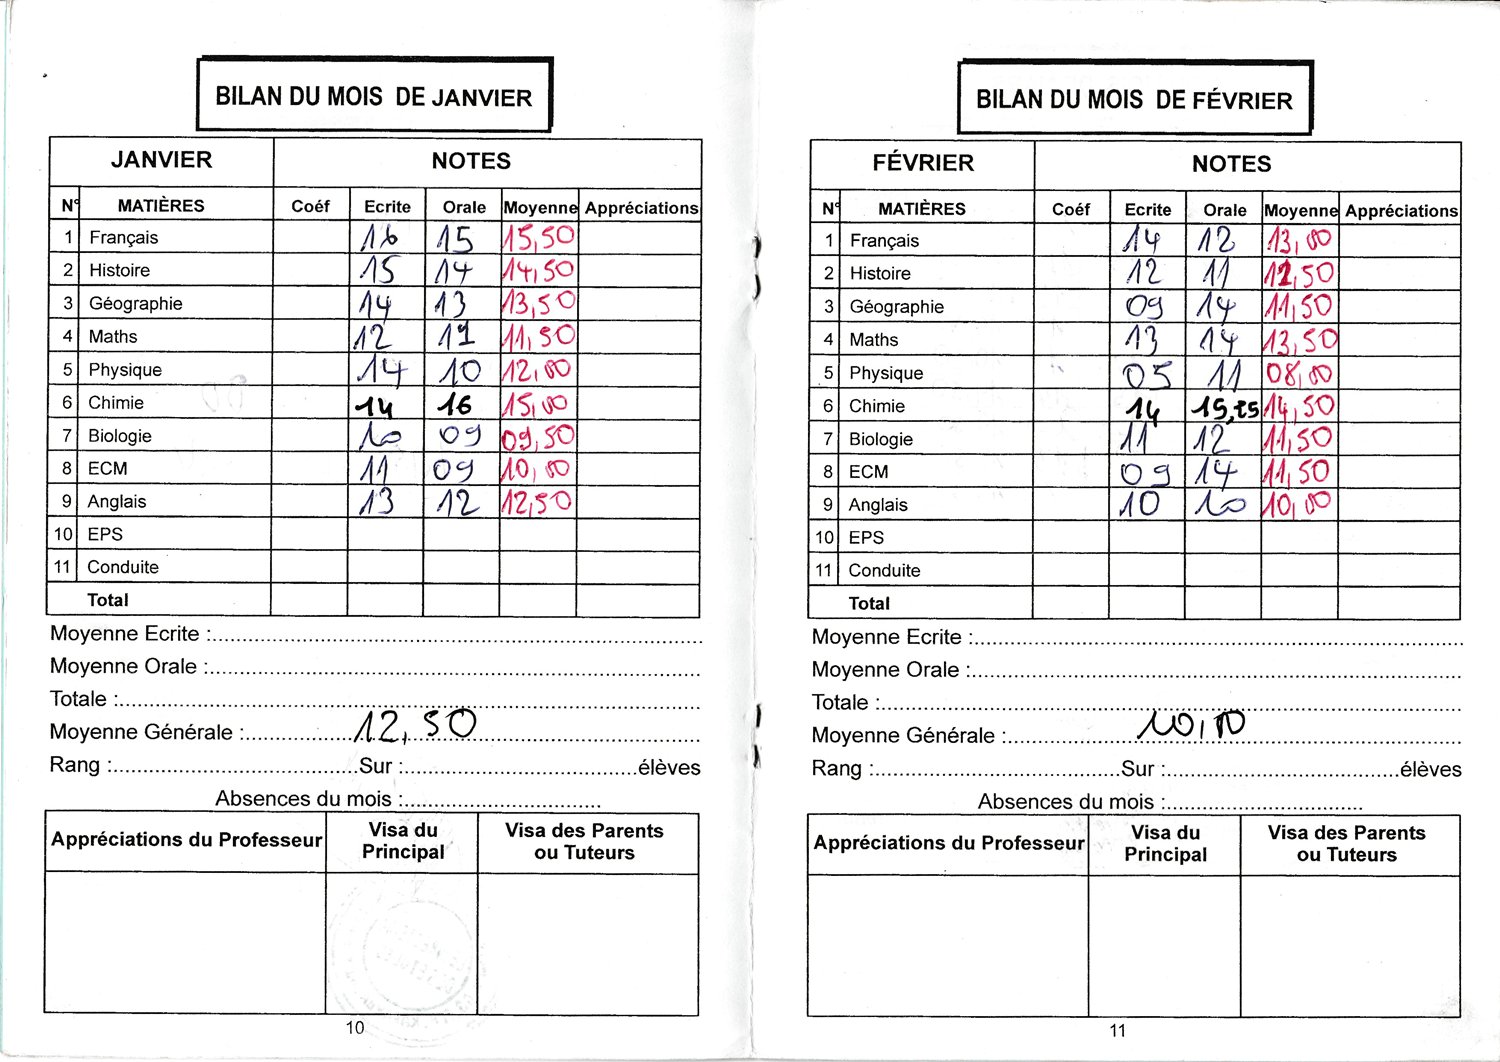 BILAN DU MOIS DE JANVIER
JANVIER NOTES
N° MATIÈRES Coéf Ecrite Orale Moyenne Appréciations
1 Français 16 15 15,50
2 Histoire 15 14 14,50
3 Géographie 14 13 13,50
4 Maths 12 11 11,50
5 Physique 14 10 12,00
6 Chimie 14 16 15,00
7 Biologie 10 09 09,50
8 ECM 11 09 10,00
9 Anglais 13 12 12,50
10 EPS
11 Conduite
Total
Moyenne Ecrite :
Moyenne Orale :
Totale :
Moyenne Générale : 12,50
Rang : Sur : élèves
Absences du mois :
Appréciations du Professeur Visa du Principal Visa des Parents ou Tuteurs
10
BILAN DU MOIS DE FÉVRIER
FÉVRIER NOTES
N° MATIÈRES Coéf Ecrite Orale Moyenne Appréciations
1 Français 14 12 13,00
2 Histoire 12 11 11,50
3 Géographie 09 14 11,50
4 Maths 13 14 13,50
5 Physique 05 11 08,00
6 Chimie 14 15,25 14,50
7 Biologie 11 12 11,50
8 ECM 09 14 11,50
9 Anglais 10 10 10,00
10 EPS
11 Conduite
Total
Moyenne Ecrite :
Moyenne Orale :
Totale :
Moyenne Générale :
Rang : Sur : élèves
Absences du mois :
Appréciations du Professeur Visa du Principal Visa des Parents ou Tuteurs
11